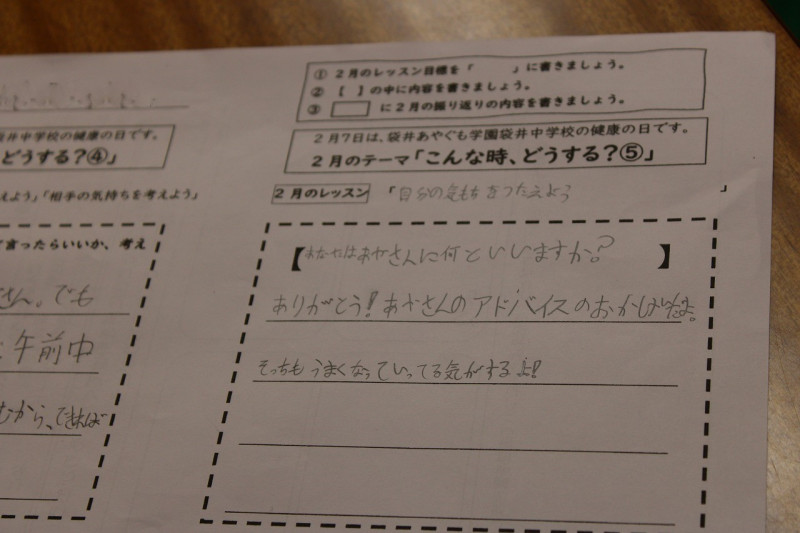 ① 2月のレッスン目標を「　　　」に書きましょう。
② 【　】の中に内容を書きましょう。
③ に2月の振り返りの内容を書きましょう。
袋井中学校の健康の日です。
どうする?④」
2月7日は、袋井あやぐも学園袋井中学校の健康の日です。
2月のテーマ「こんな時、どうする?⑤」
えよう」「相手の気持ちを考えよう」
2月のレッスン 「自分の気もちをつたえよう」
言ったらいいか、考え
さん。でも
午前中
むから、できれば
【あなたはあやさんに何といいますか?】
ありがとう!あやさんのアドバイスのおかげだよ。
そっちもうまくなっていってる気がするよ!